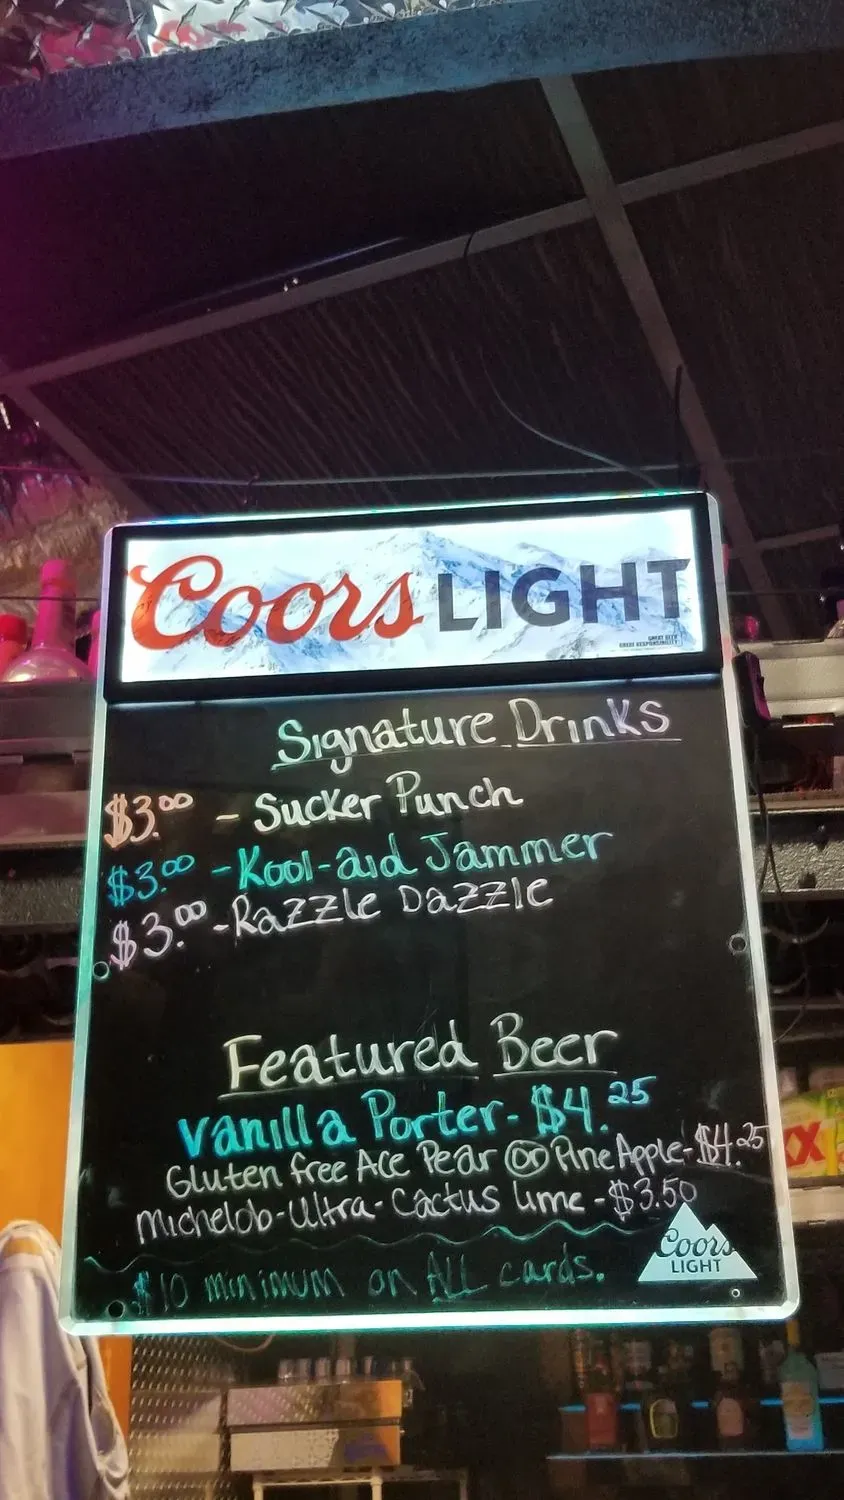 Coors LIGHT
GREAT BEER
GREAT RESPONSIBILITY
Signature Drinks
$3.00 - Sucker Punch
$3.00 - Kool-aid Jammer
$3.00 - Razzle Dazzle
Featured Beer
Vanilla Porter - $4.25
Gluten free Ace Pear or PineApple - $4.25
Michelob-Ultra-Cactus Lime - $3.50
$10 minimum on ALL cards.
Coors
LIGHT
XX